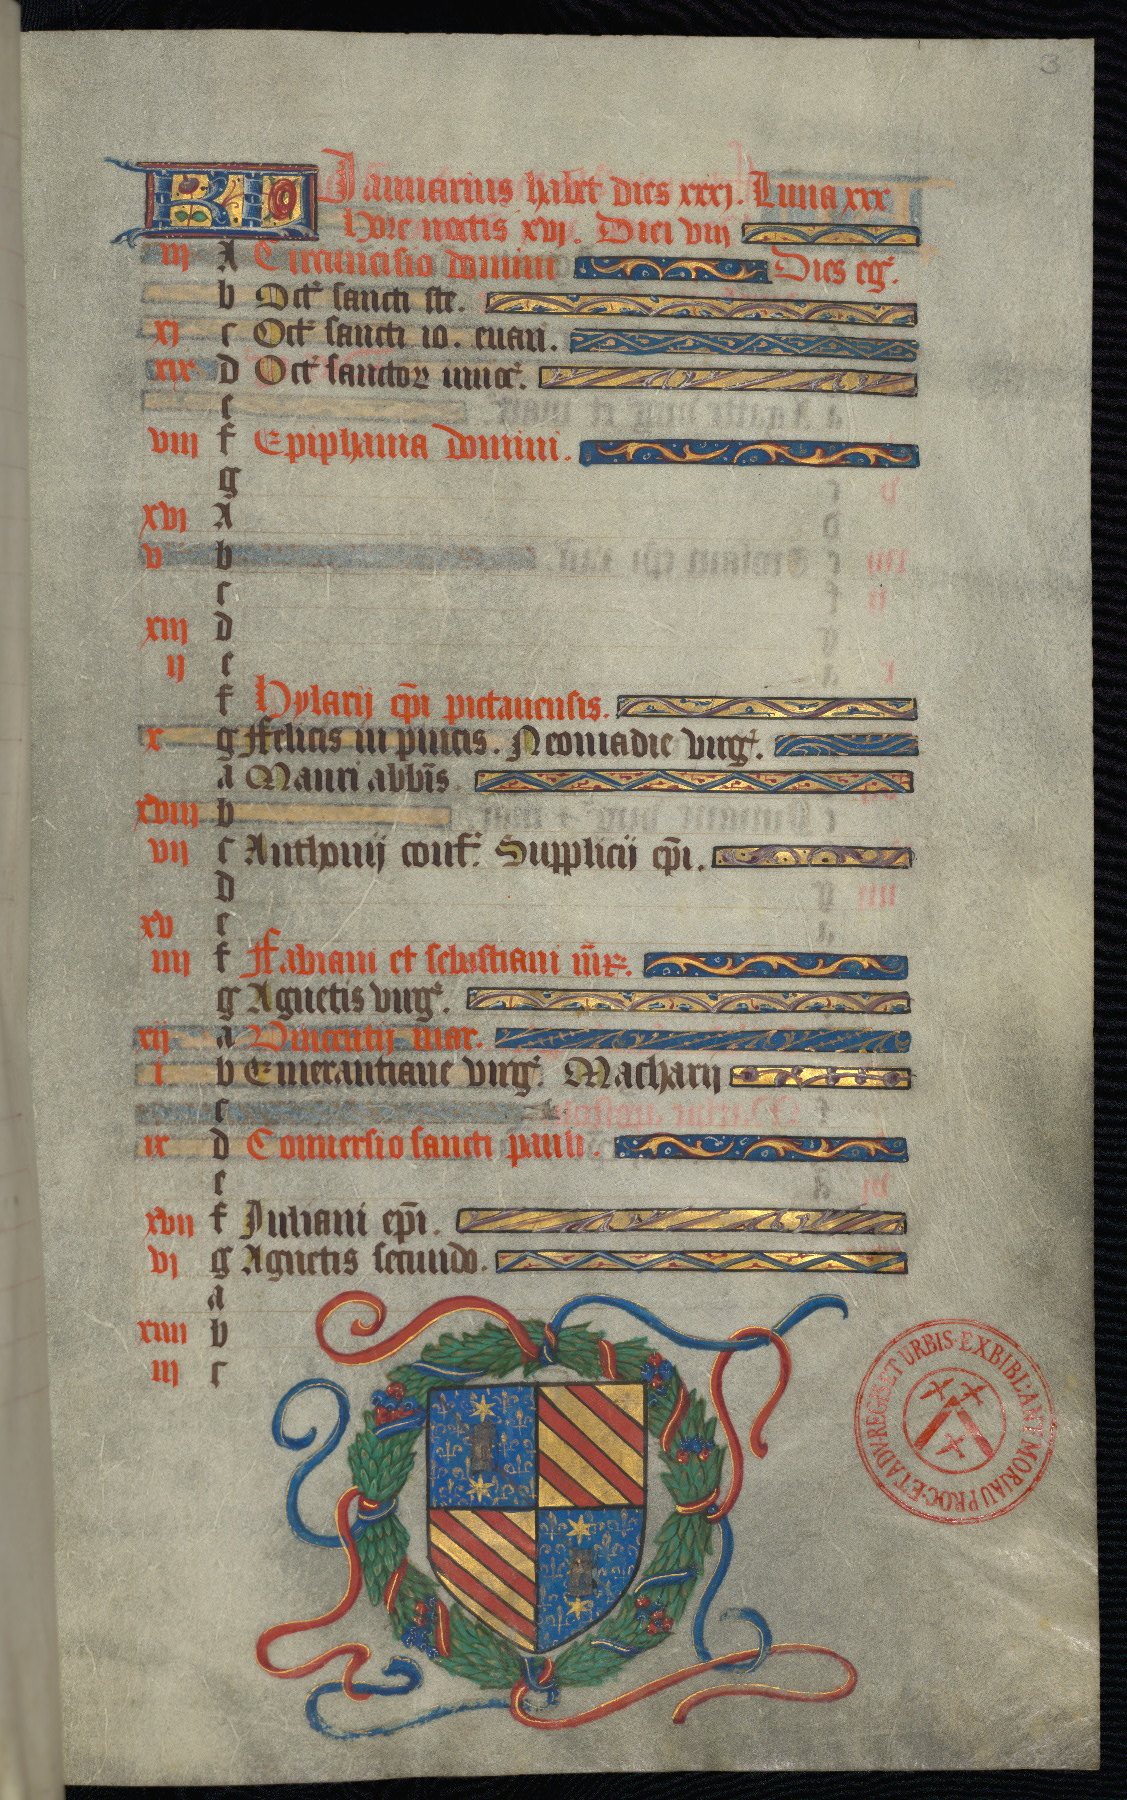 3
KL Januarius habet dies xxxj. Luna xxx
Hore noctis xvj. Diei viij
iij A Circuncisio domini Dies eg.
b Oct sancti ste.
xj c Oct sancti io. euan.
xix d Oct sanctor innoc.
e
viij f Epiphania domini.
g
xvj A
v b
c
xiij d
ij e
f Hylarij epi pictauensis.
x g Felicis in pincis. Neomadie virg.
a Mauri abbis
xviij b
vij c Anthonij conf. Supplicij epi.
d
xv e
iiij f Fabiani et sebastiani mr.
g Agnetis virg.
xij a Vincentij mar.
i b Emerantiane virg. Macharij
c
ix d Conuersio sancti pauli.
e
xvij f Juliani epi.
vj g Agnetis secundo.
a
xiiij b
iij c
EX BIBL. ANT MORIAU PROC. ET ADV. REGIS ET URBIS